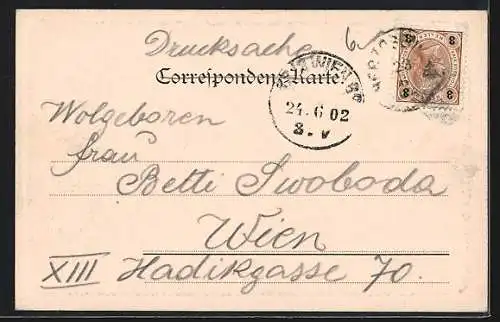 Drucksache
6
Correspondenz-Karte
WIEN
24.6 02
8. V
3 3
3 3
Wolgeboren
frau
Betti Swoboda
Wien
XIII Hadikgasse 70.